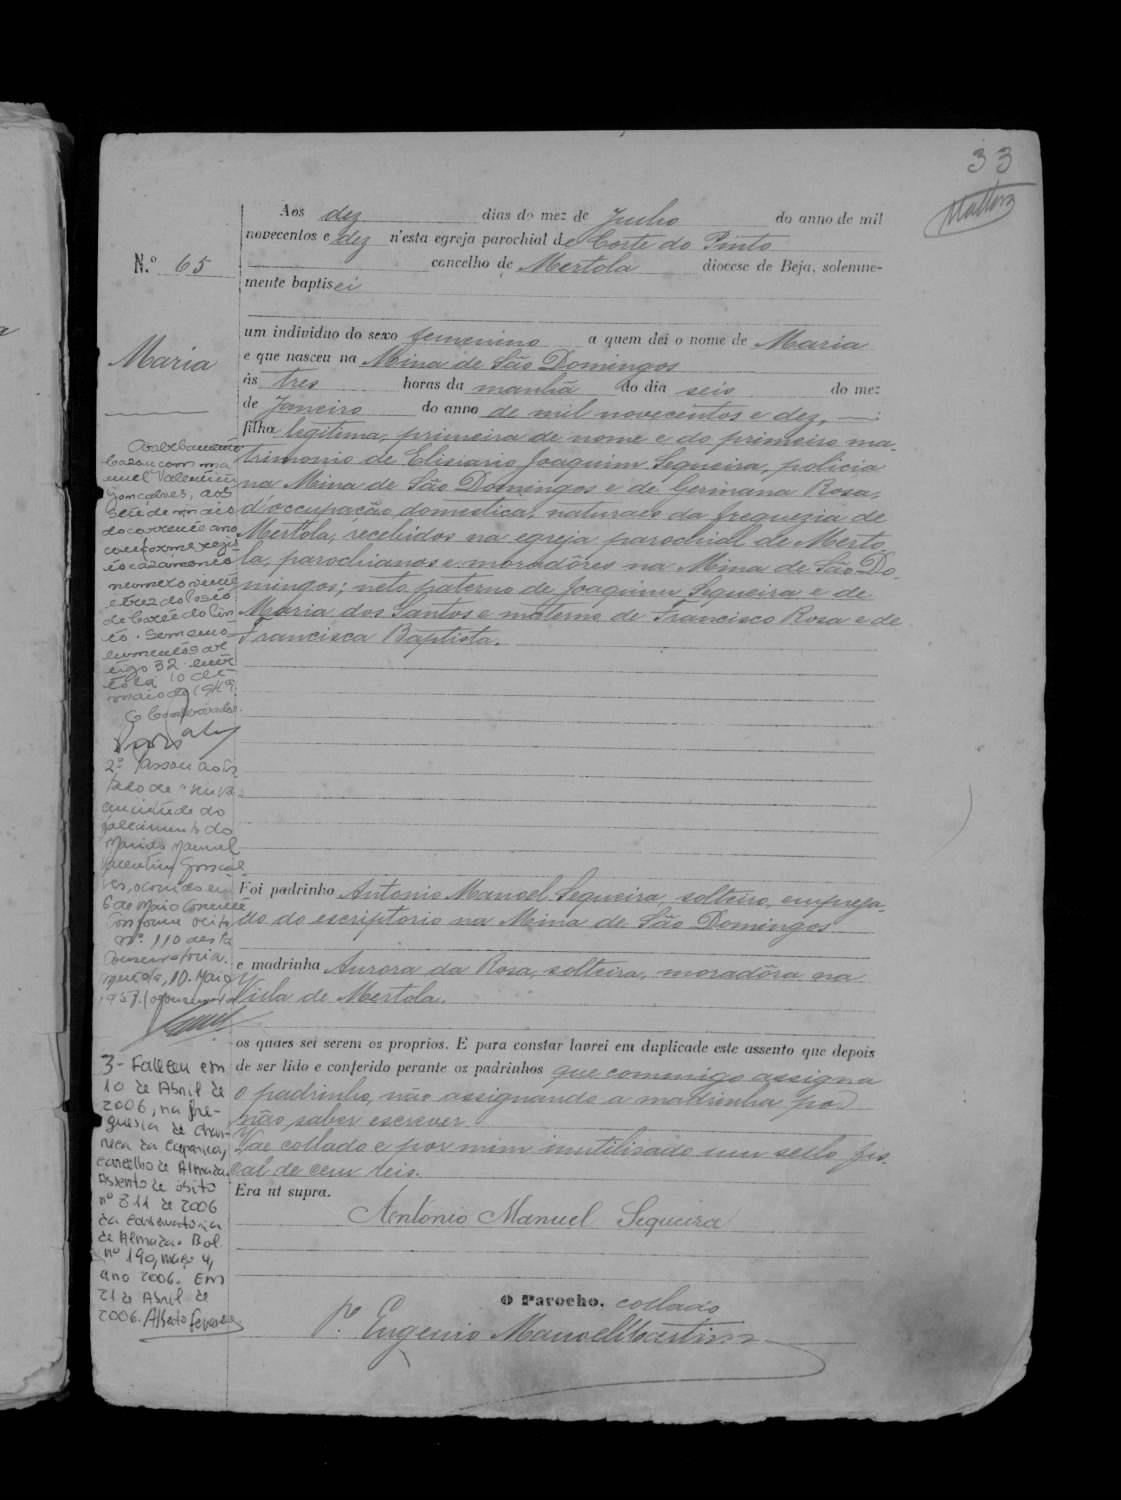 33
Mattos
N.º 65
Maria
Aos dez dias do mez de Junho do anno de mil
novecentos e dez n'esta egreja parochial de Corte do Pinto
concelho de Mertola diocese de Beja, solemne-
mente baptisei
um individuo do sexo femenino a quem dei o nome de Maria
e que nasceu na Mina de São Domingos
ás tres horas da manhã do dia seis do mez
de Janeiro do anno de mil novecentos e dez,
filha legitima, primeira de nome e do primeiro ma-
trimonio de Elisiario Joaquim Sequeira, policia
na Mina de São Domingos e de Germana Rosa,
d'occupação domestica, naturaes da freguezia de
Mertola, recebidos na egreja parochial de Merto
la, parochianos e moradôres na Mina de São Do-
mingos; neto paterno de Joaquim Sequeira e de
Maria dos Santos e materno de Francisco Rosa e de
Francisca Baptista.
Foi padrinho Antonio Manoel Sequeira, solteiro, emprega-
do do escriptorio na Mina de São Domingos
e madrinha Aurora da Rosa, solteira, moradôra na
Villa de Mertola.
os quaes sei serem os proprios. E para constar lavrei em duplicado este assento que depois
de ser lido e conferido perante os padrinhos que commigo assigna
o padrinho, não assignando a madrinha por
não saber escrever.
Vae collado e por mim inutilisado um sello fis-
cal de cem reis.
Era ut supra.
António Manuel Sequeira
O Parocho, collado
Pe. Eugenio Manoel Martins
casou com Ma
nuel Valentim
Gonçalves, aos
sete de maio
do corrente ano
conforme regis
to casamento
numero vinte
e trez do posto
de Corte do Pin
to.
tigo 32. Mer
tola 10 de
maio de 1949.
O Conservador
2º Passou ao es
tado de viuva
em virtude do
falecimento do
marido Manuel
Valentim Gonçal
ves, ocorrido em
6 de Maio corrente
conforme
nº 110 desta
Conservatoria.
Mertola, 10. Maio
1957. O Conservador
3- Faleceu em
10 de Abril de
2006, na fre-
guesia de Char-
neca da Caparica,
concelho de Almada.
Assento de óbito
nº 311 de 2006
da Conservatoria
de Almada. Bol
nº 190, maço 4,
ano 2006. Em
21 de Abril de
2006. Alberto